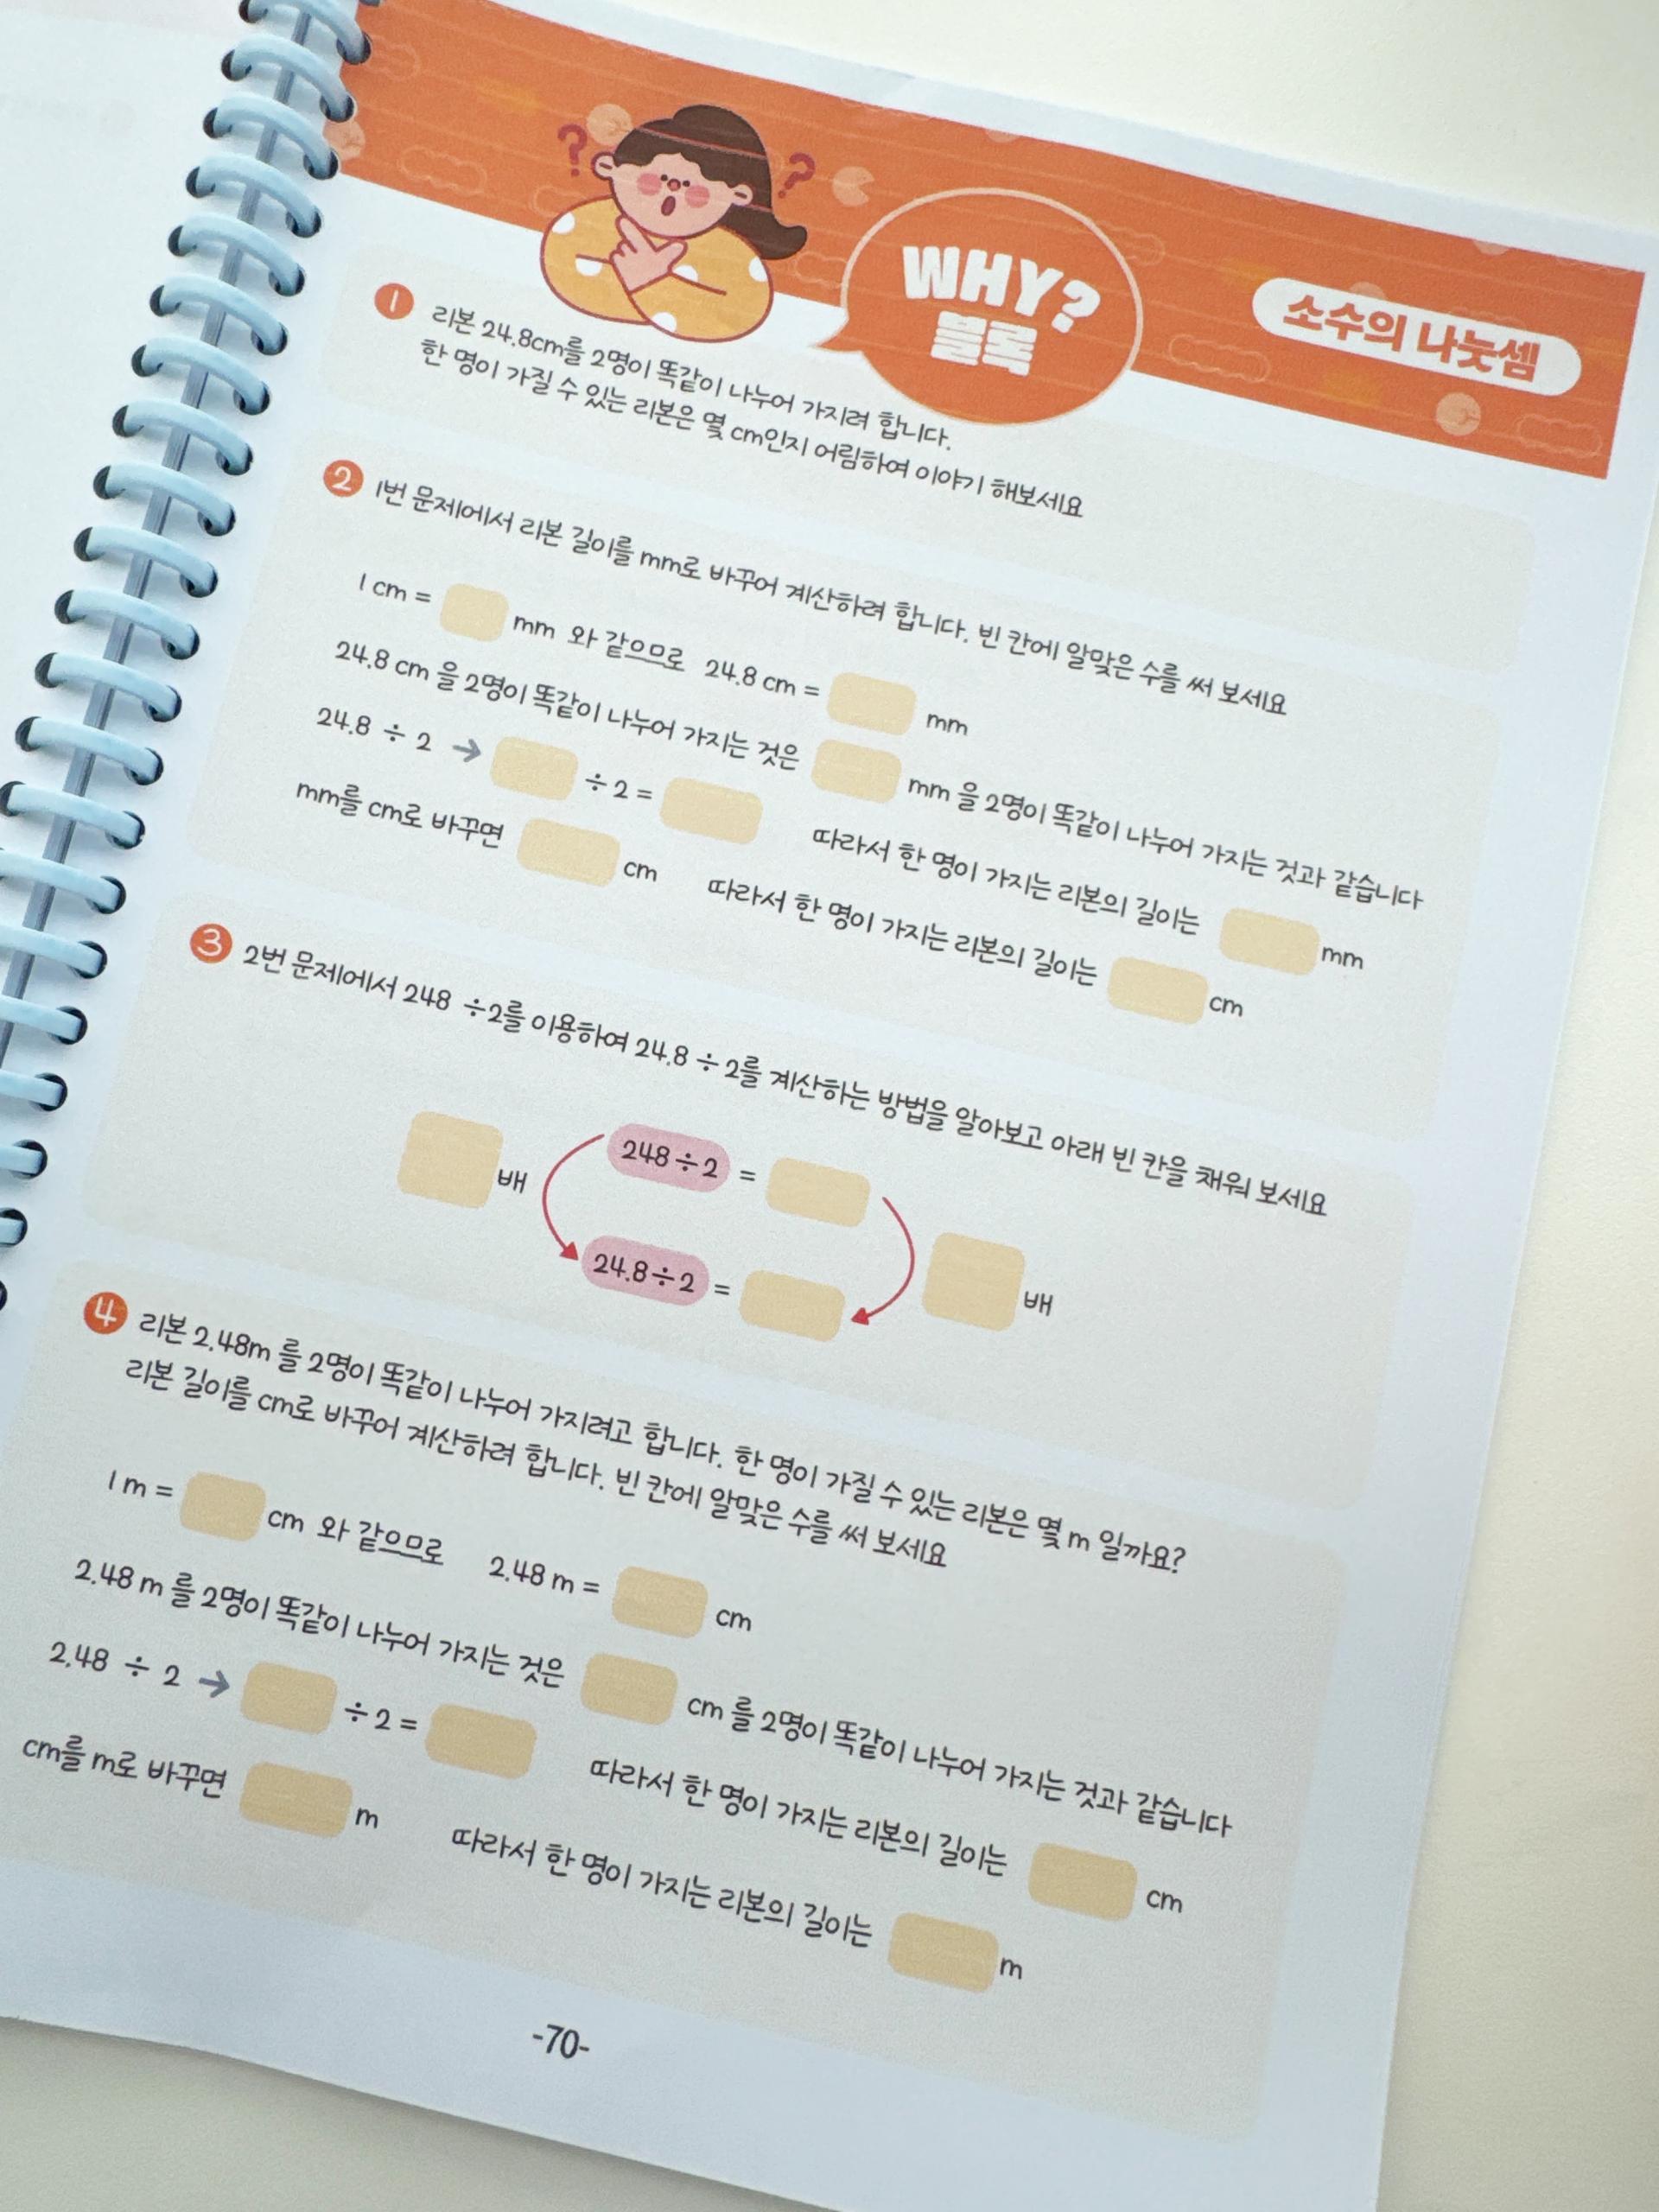 WHY?
블록
소수의 나눗셈
1 리본 24.8cm를 2명이 똑같이 나누어 가지려 합니다.
한 명이 가질 수 있는 리본은 몇 cm인지 어림하여 이야기 해보세요
2 1번 문제에서 리본 길이를 mm로 바꾸어 계산하려 합니다. 빈 칸에 알맞은 수를 써 보세요
1 cm = mm 와 같으므로 24.8 cm = mm
24.8 cm 을 2명이 똑같이 나누어 가지는 것은 mm 을 2명이 똑같이 나누어 가지는 것과 같습니다
24.8 ÷ 2 → ÷ 2 = 따라서 한 명이 가지는 리본의 길이는 mm
mm를 cm로 바꾸면 cm 따라서 한 명이 가지는 리본의 길이는 cm
3 2번 문제에서 248 ÷2를 이용하여 24.8 ÷ 2를 계산하는 방법을 알아보고 아래 빈 칸을 채워 보세요
배 248÷2 =
24.8÷2 = 배
4 리본 2.48m 를 2명이 똑같이 나누어 가지려고 합니다. 한 명이 가질 수 있는 리본은 몇 m 일까요?
리본 길이를 cm로 바꾸어 계산하려 합니다. 빈 칸에 알맞은 수를 써 보세요
1 m = cm 와 같으므로 2.48 m = cm
2.48 m 를 2명이 똑같이 나누어 가지는 것은 cm 를 2명이 똑같이 나누어 가지는 것과 같습니다
2.48 ÷ 2 → ÷ 2 = 따라서 한 명이 가지는 리본의 길이는 cm
cm를 m로 바꾸면 m 따라서 한 명이 가지는 리본의 길이는 m
-70-